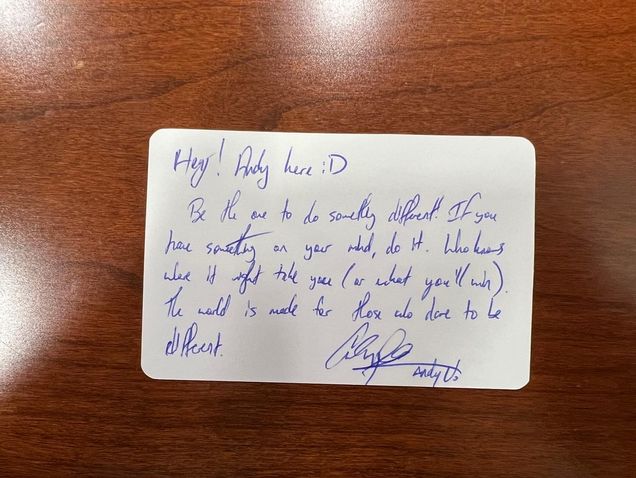 Hey! Andy here :D
Be the one to do something different! If you
have something on your mind, do it. Who knows
where it might take you (or what you'll win).
The world is made for those who dare to be
different.
Andy Vo